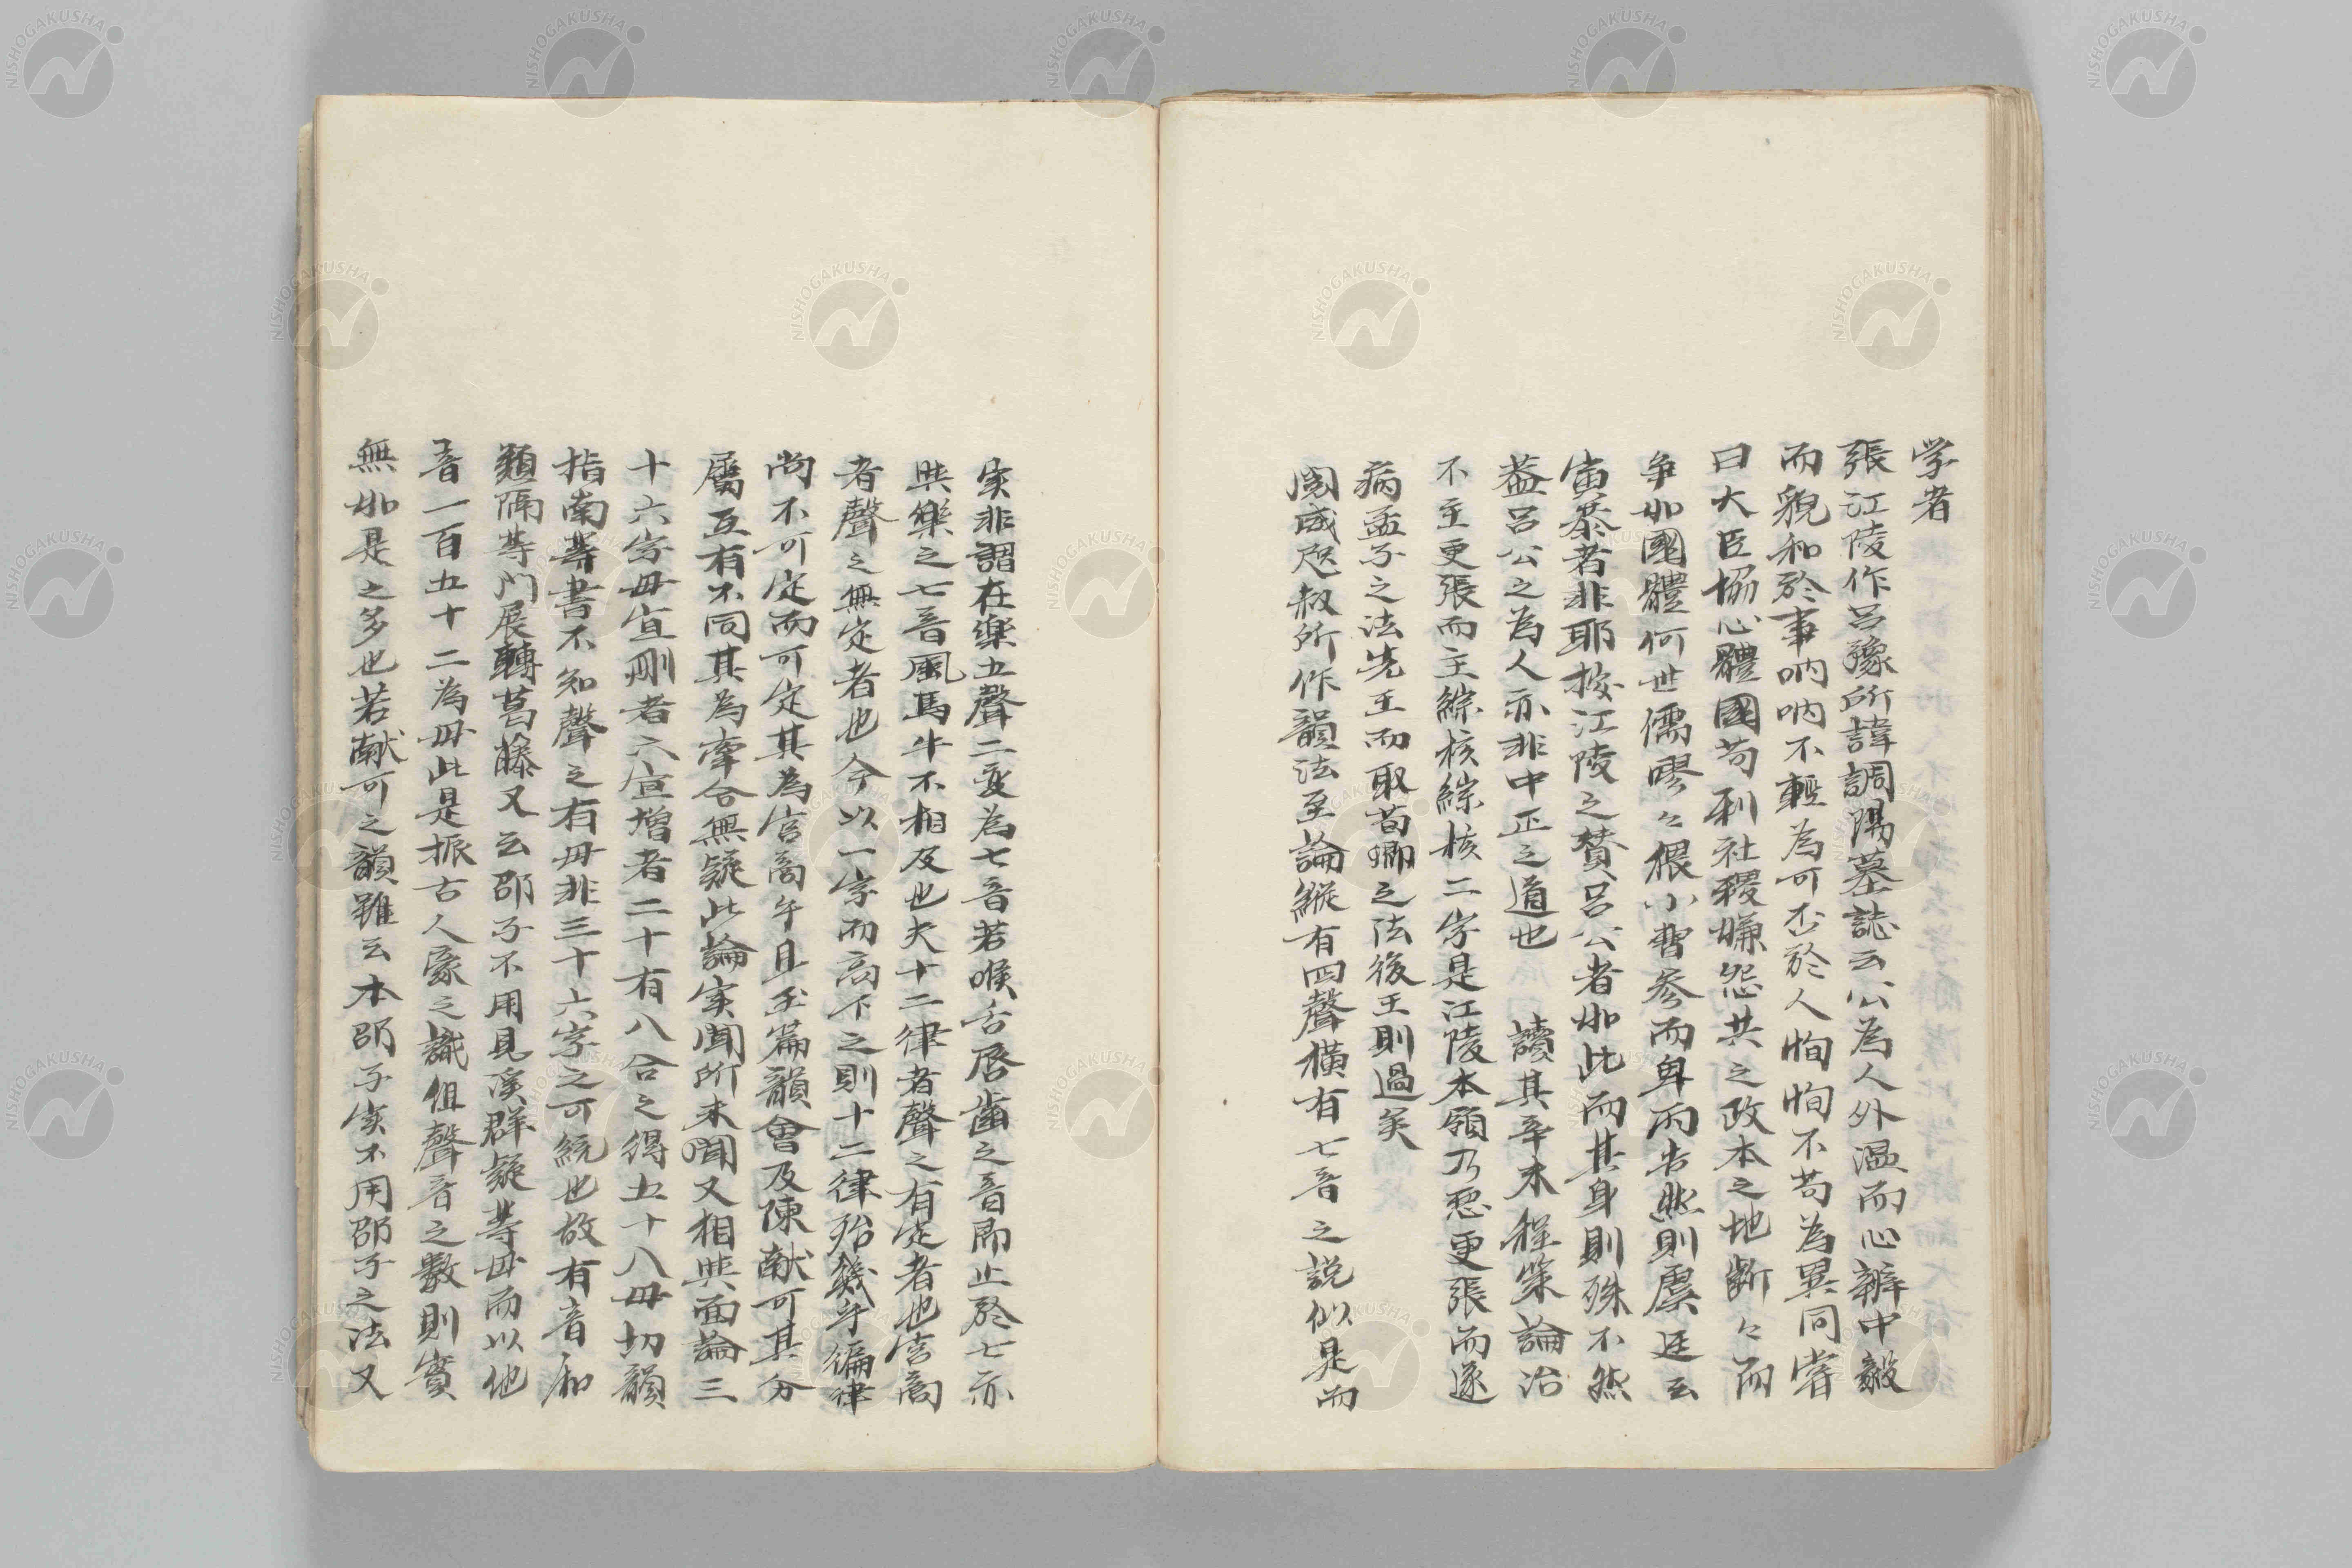 学者
張江陵作呂豫所諱調陽墓誌云公為人外温而心辨中毅
而貌和於事吶吶不輕為可否於人恂恂不苟為異同嘗
曰大臣協心體國苟利社稷嫌怨共之政本之地齗々而
争如國體何世儒嘐々猥小曹参而卑丙吉然則虞廷云
寅恭者非耶按江陵之賛呂公者如此而其身則殊不然
葢呂公之為人亦非中正之道也 讀其辛未程策論治
不主更張而主綜核綜核二字是江陵本領乃惡更張而遂
病孟子之法先王而取荀卿之法後王則過矣
閲咸咫叔所作韻法至論縱有四聲橫有七音之説似是而
実非謂在樂五聲二変為七音若喉舌唇齒之音即止於七亦
與樂之七音風馬牛不相及也夫十二律者聲之有定者也宮商
者聲之無定者也今以一字而高下之則十二律殆幾乎徧律
尚不可定而可定其為宮商乎且玉篇韻會及陳献可其分
属互有不同其為牽合無疑此論実聞所未聞又相與面論三
十六字毋宜刪者六宜增者二十有八合之得五十八毋切韻
指南等書不知聲之有毋非三十六字之可統也故有音和
類隔等門展轉葛藤又云邵子不用見溪群疑等毋而以他
音一百五十二為毋此是振古人豪之識但聲音之數則實
無如是之多也若献可之韻雖云本邵子実不用邵子之法又
NISHOGAKUSHA